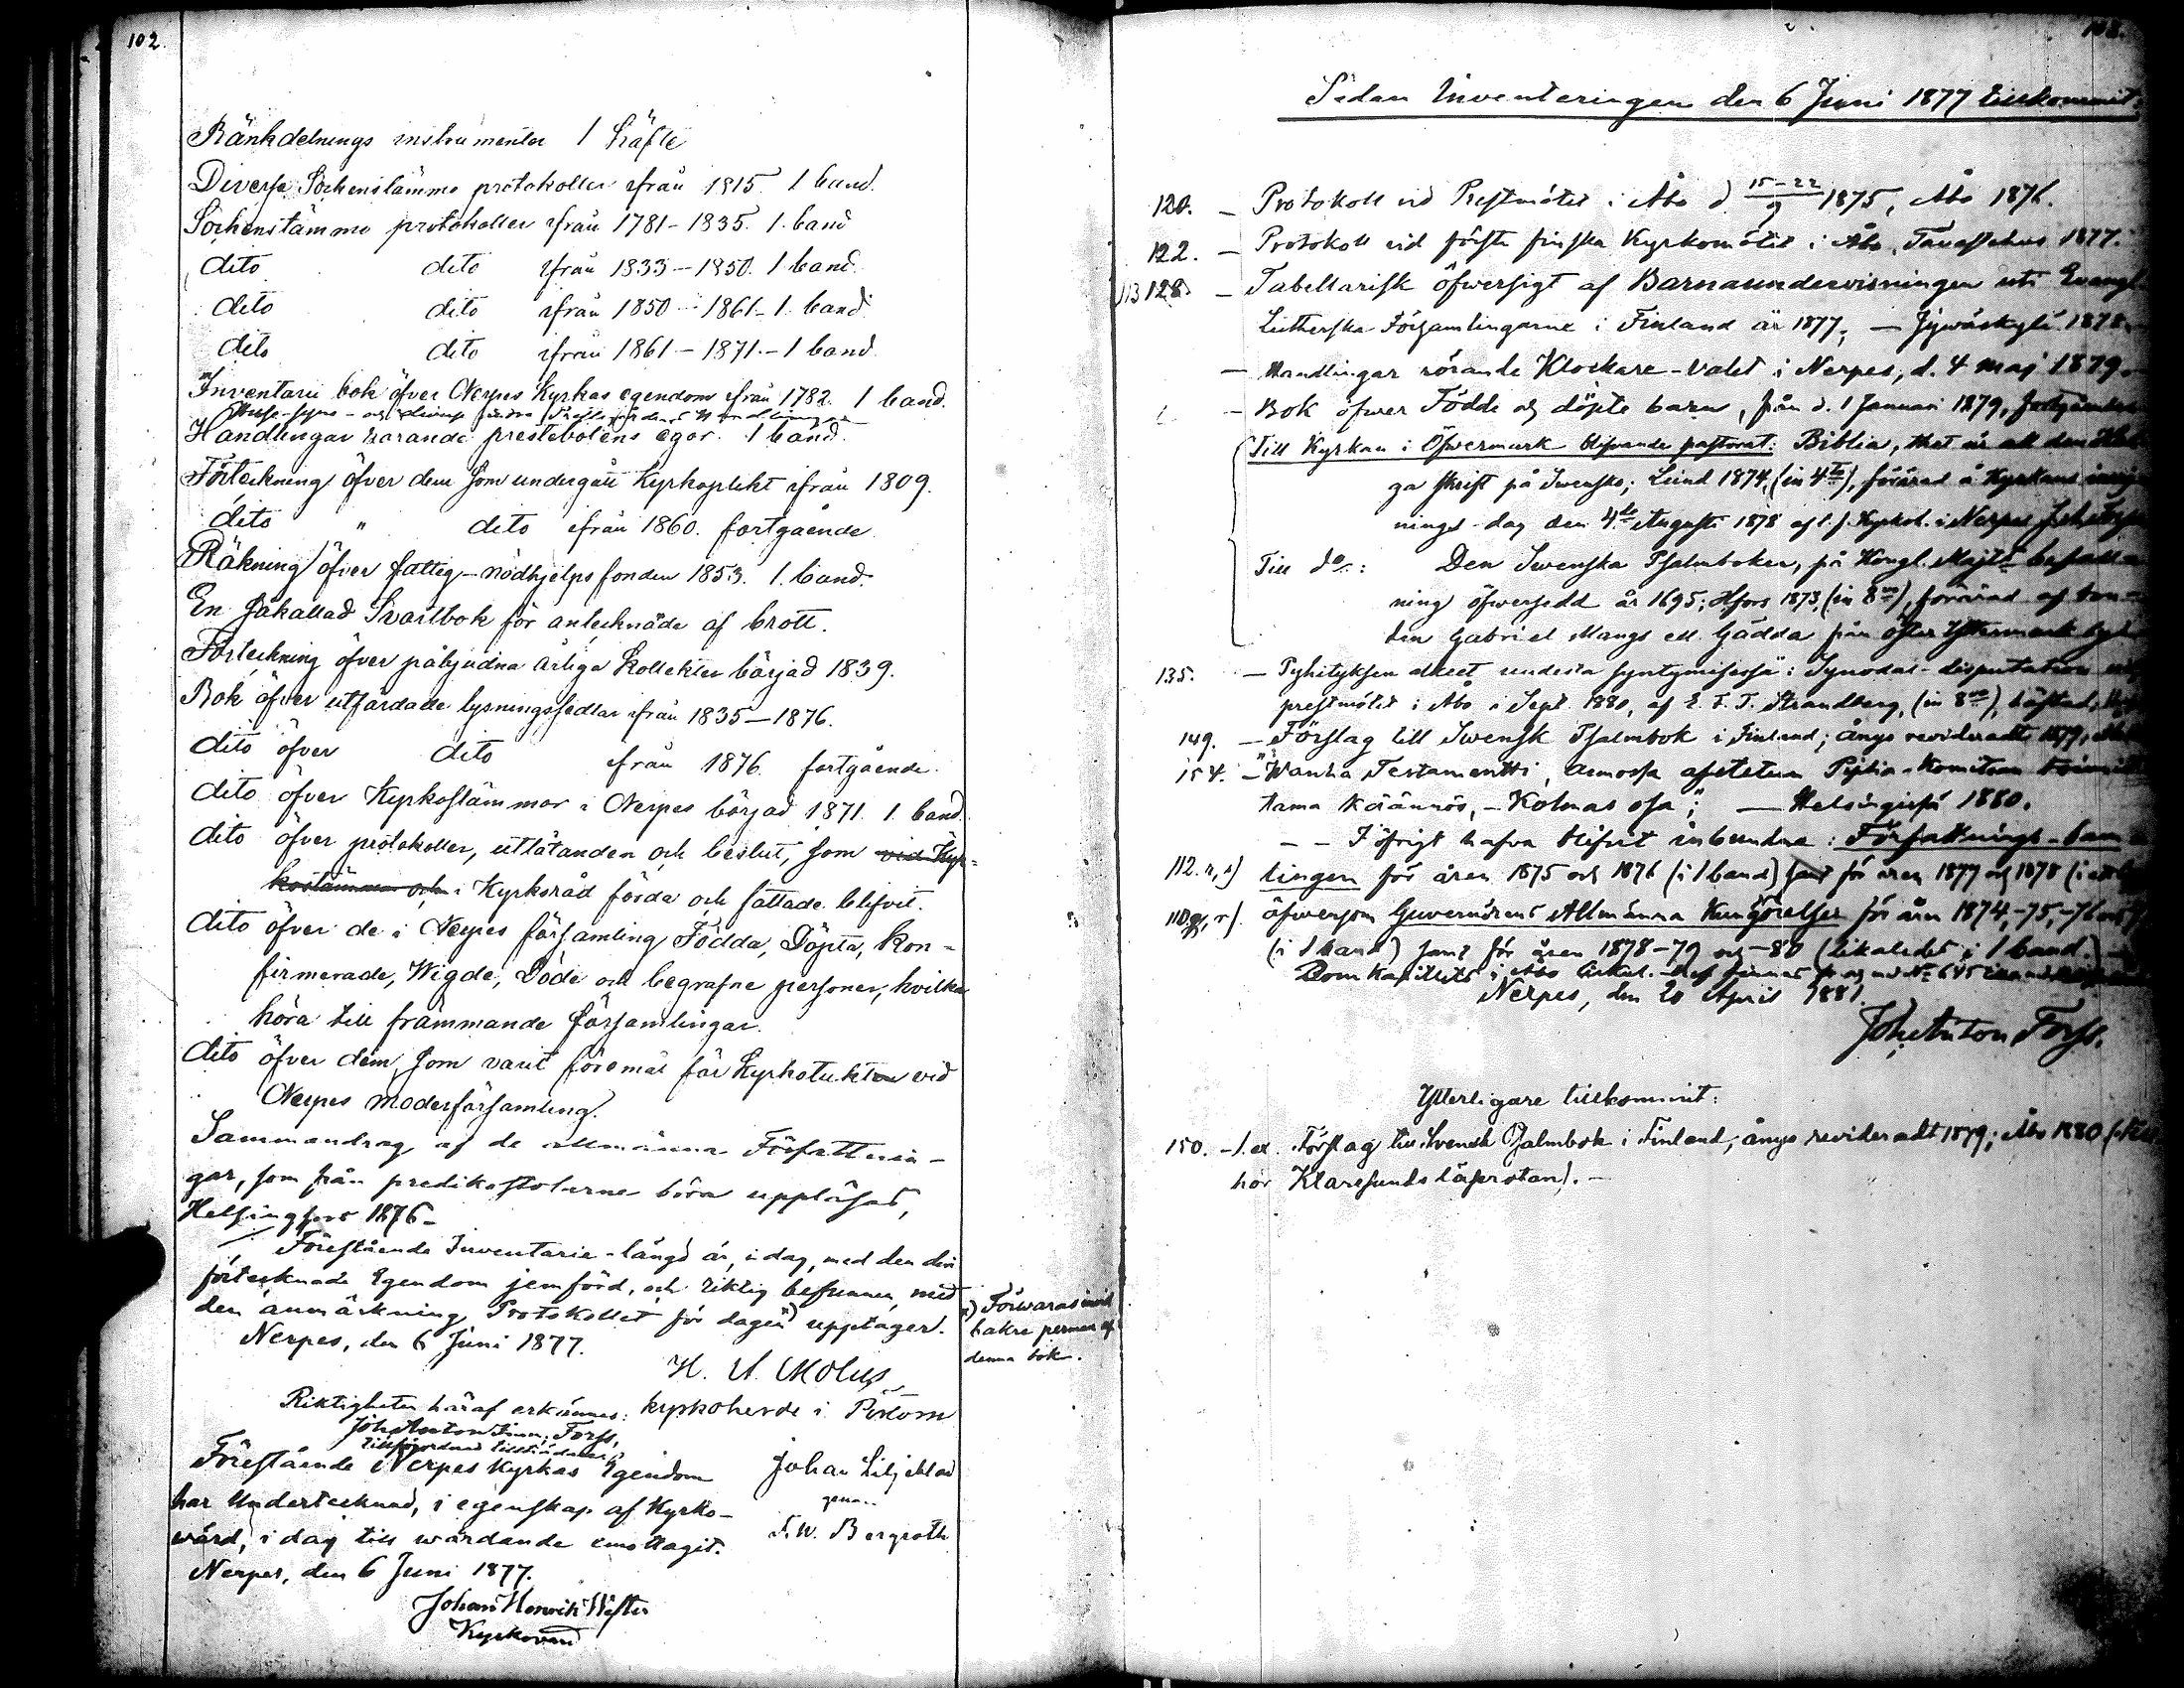 102.
Bänkdelnings instrumenter 1 häfte
Diverse Sockenstämmo protokoller ifrån 1815. 1 band.
Sockenstämmo protokoller ifrån 1781-1835. 1. band
dito dito ifrån 1833-1850. 1 band.
dito dito ifrån 1850-1861-1. band
dito dito ifrån 1861-1871.-1 band
Inventarii bok öfver Nerpes Kyrkas egendom ifrån 1782. 1 band.
Husesyns- och diverse andra
Handlingar rörande prestebolens egor. 1 band.
Förteckning öfver dem som undergått Kyrkoplikt ifrån 1809.
dito " dito ifrån 1860. fortgående
Räkning öfver fattig-nödhjelps fonden 1853. 1. band.
En såkallad Svartbok för antecknade af brott.
Förteckning öfver påbjudna årliga kollekter börjad 1839.
Bok öfver utfärdade lysningssedlar ifrån 1835-1876.
dito öfver dito ifrån 1876. fortgående.
dito öfver Kyrkostämmor i Nerpes börjad 1871. 1. band.
dito öfver protokoller, utlåtanden och beslut, som vid Kyr-
kostämmor och i Kyrkoråd förda och fattade blifvit.
dito öfver de i Nerpes församling Födda, Döpta, kon-
firmerade, Wigde, Döde och begrafne personer, hvilka
höra till främmande församlingar.
dito öfver dem, som varit föremål för Kyrkotukten vid
Nerpes moderförsamling.
Sammandrag af de allmänna Författnin-
gar, som från predikostolarne böra uppläsas,
Helsingfors 1876-
Förestående Inventarie-längd är, i dag, med den deri
förtecknade Egendom jemförd, och riktig befunnen, med
den anmärkning Protokollet för dagen x) upptager.
Nerpes, den 6 Juni 1877.
x) Förvaras invid
bakre permen af
denna bok.
Riktigheten häraf erkännes:
kyrkoherde i Pörtom
Joh. Anton Forss,
Förestående Nerpes Kyrkas Egendom
har Undertecknad, i egenskap af Kyrko-
vård, i dag till vårdande emottagit.
Nerpes, den 6 Juni 1877.
Johan Liljeblad
genom
F. W. Bergroth
Johan Henrik
Kyrkovärd
103.
Sedan Inventeringen den 6 Juni 1877 tillkommit.
120. - Protokoll vid Prestmötet i Åbo d. 15-22/9 1875, Åbo 1876.
122. - Protokoll vid första finska Kyrkomötet i Åbo, Tavastehus 1877.
128. - Tabellarisk öfwersigt af Barnaundervisningen uti Evangl.
Lutherska Församlingarne i Finland år 1877, - Jywäskylä 1878.
- Handlingar rörande Klockare-valet i Nerpes, d. 4 maj 1879.
- Bok öfwer Födde och döpte barn, från d. 1 Januari 1879, fortgående
Till Kyrkan i Öfwermark blifvande pastorat: Biblia, thet är all den Heli-
ga skrift på Swensko; Lund 1874, (in 4to), förärad å Kyrkans invig-
nings-dag den 4de Augusti 1878 af Kyrkoh. i Nerpes
Till do: Den Swenska Psalmboken, på Kongl. Majts befall-
ning öfwersedd år 1695; Hfors 1873, (in 8vo), förärad af bon-
den Gabriel Mangs ell. Gädda från Öfwer Yttermark
135. - Pyhityksen alkeet uudesta syntymisessä: Synodal-disputation vid
prestmötet i Åbo i Sept. 1880, af E. F. T. Strandberg, (in 8vo), häftad,
149. - Förslag till Swensk Psalmbok i Finland; ånyo revideradt 1879,
154. - "Wanha Testamentti, armossa asetetun Piplia-Komitean toimit-
tama käännös, - Kolmas osa"; - Helsingissä 1880.
- - I öfrigt hafva blifvit inbundna: Författnings-sam-
112. r, s) lingen för åren 1875 och 1876 (i 1 band) samt för åren 1877 och 1878
110 q, r). äfwensom Guvernörens Allmänna Kungörelser för åren 1874,-75,-76
(i 1 band) samt för åren 1878-79 och -80 (likaledes i 1 band.)
Domkapitlets i Åbo Cirkul.-bref
Nerpes, den 20 April 1881.
Joh. Anton Forss.
Ytterligare tillkommit:
150. - 1. ex. Förslag till Svensk Psalmbok i Finland, ånyo revideradt 1879; Åbo 1880
hör Klaresunds läsrotan). -